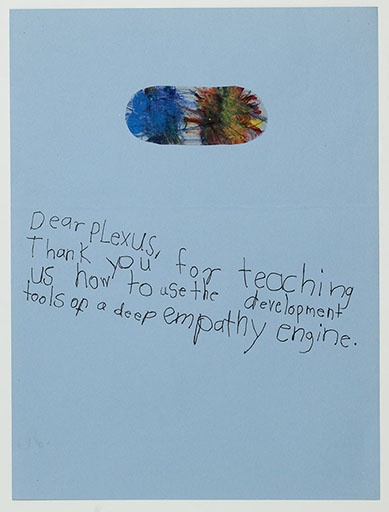 Dear PLexus,
Thank you for teaching
us how to use the development
tools of a deep empathy engine.